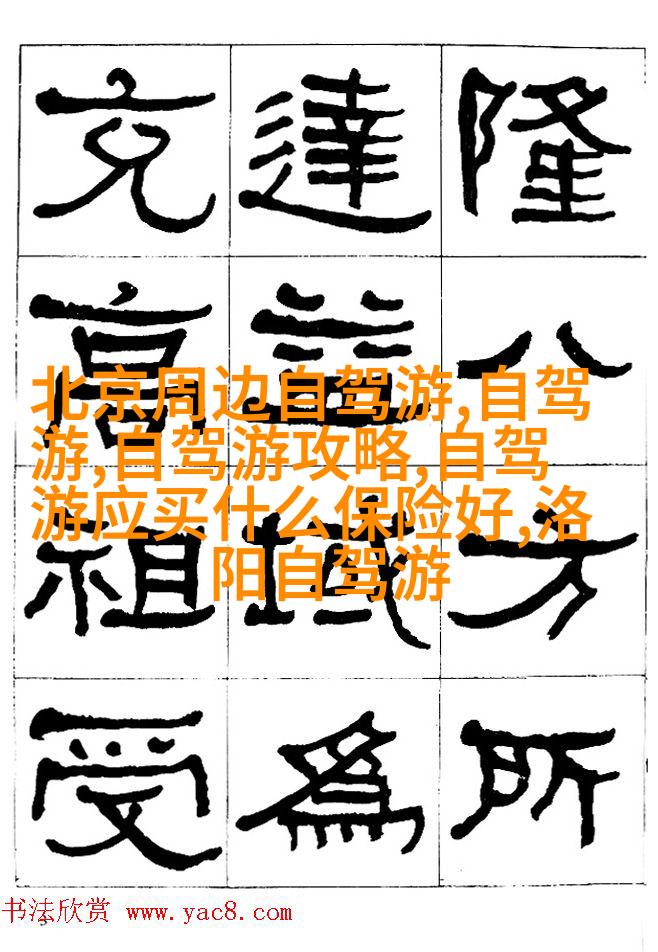 隆八方所
達益域為
充高祖受
北京周边自驾游,自驾
游,自驾游攻略,自驾
游应买什么保险好,洛
阳自驾游
3
书法欣赏 www.yac8.com